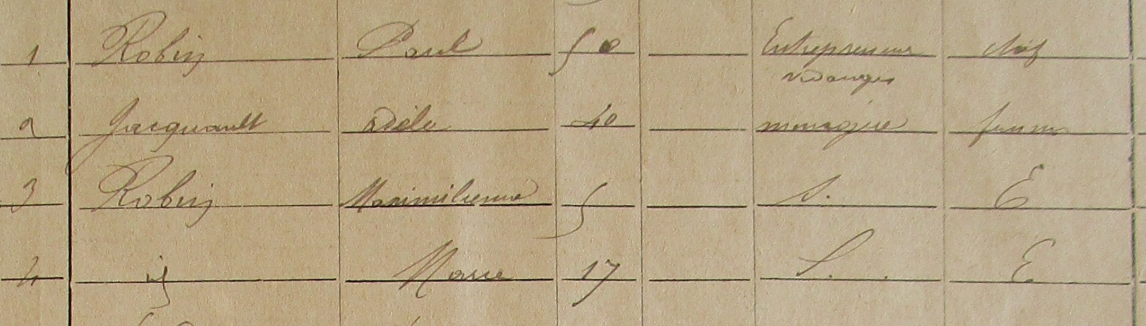 1 Robin Paul 50 Entrepreneur chef
vidanges
2 Jacquault Adèle 40 menagère femme
3 Robin Maximilienne 5 S. E
4 id Marie 17 S. E